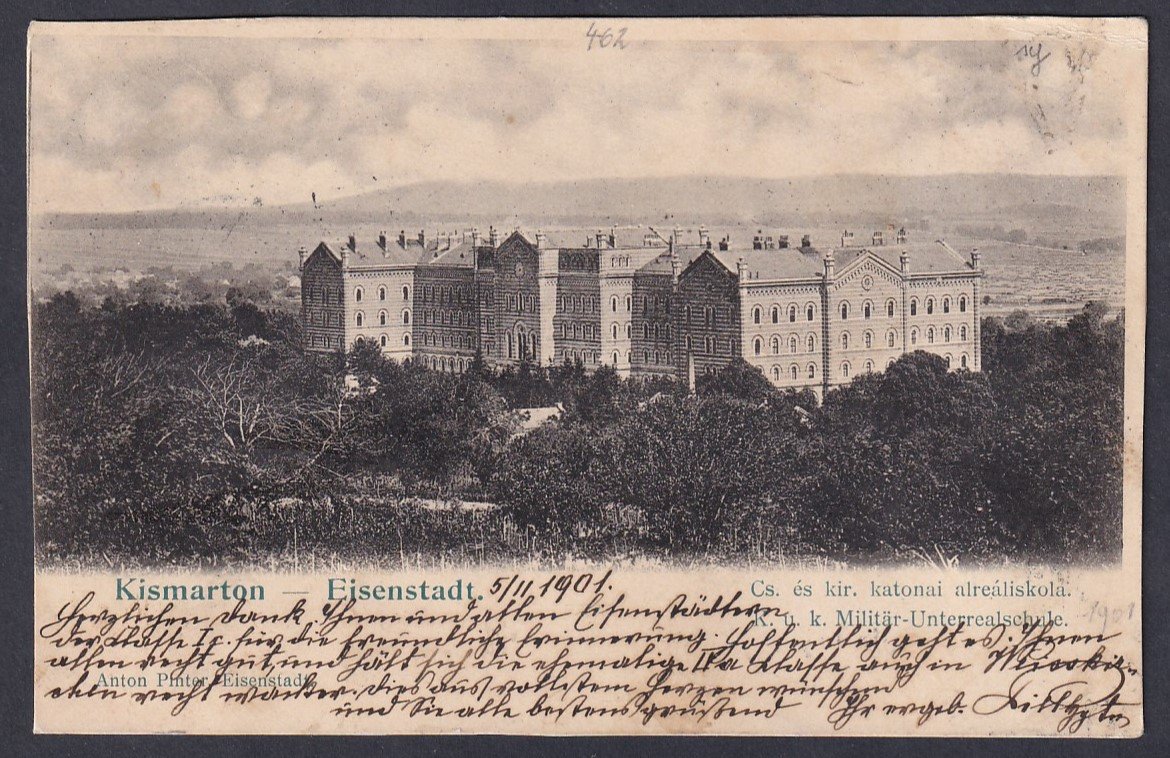 462
Kismarton — Eisenstadt. 5/11 1901.
Cs. és kir. katonai alreáliskola.
K. u. k. Militär-Unterrealschule.
1901
Herzlichen Dank Ihnen und allen Eisenstädtern
der Classe Ic. für die freundliche Erinnerung. Hoffentlich geht es Ihnen
allen recht gut und hält sich die ehemalige IIa Classe auch in
Anton Pinter, Eisenstadt
recht wacker. Dies aus vollstem Herzen wünschen
und Sie alle bestens grüssend Ihr ergeb.